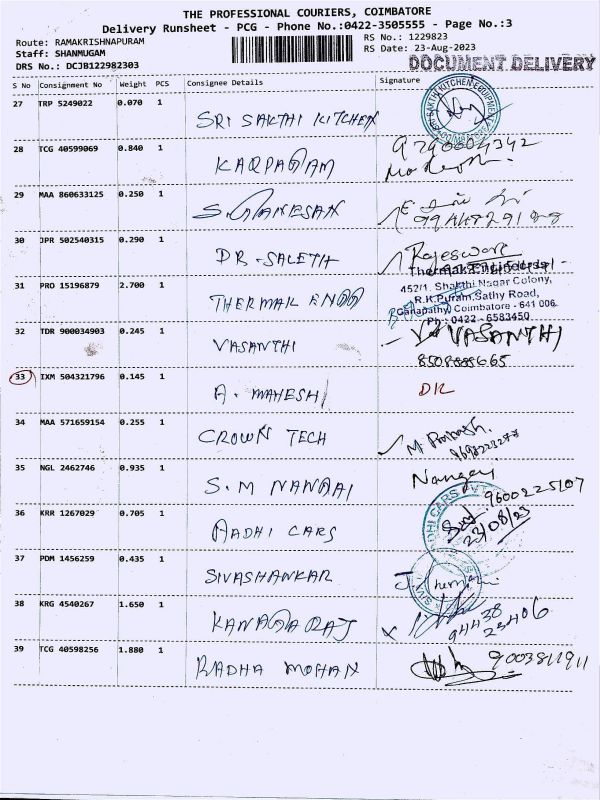 THE PROFESSIONAL COURIERS, COIMBATORE
Delivery Runsheet - PCG - Phone No.:0422-3505555 - Page No.:3
Route: RAMAKRISHNAPURAM
Staff: SHANMUGAM
DRS No.: DCJB122982303
RS No.: 1229823
RS Date: 23-Aug-2023
DOCUMENT DELIVERY
S No Consignment No Weight PCS Consignee Details Signature
27 TRP 5249022 0.070 1 SRI SAKTHI KITCHEN
28 TCG 40599069 0.840 1 KARPAGAM 9790604342
29 MAA 860633125 0.250 1 S.GANESAN
30 JPR 502540315 0.290 1 DR.SALETH Rajeswari
31 PRO 15196879 2.700 1 THERMAK ENGG
Thermak Engineers
452/1, Shakthi Nagar Colony,
R.K.Puram, Sathy Road,
Ganapathy, Coimbatore - 641 006.
Ph : 0422 - 6583450
32 TDR 900034903 0.245 1 VASANTHI VASANTHI
33 IXM 504321796 0.145 1 A. MAHESH DR
34 MAA 571659154 0.255 1 CROWN TECH M Prakash.
35 NGL 2462746 0.935 1 S.M NANGAI Nangay
9600225107
36 KRR 1267029 0.705 1 AADHI CARS
23/08/23
37 PDM 1456259 0.435 1 SIVASHANKAR
38 KRG 4540267 1.650 1 KANAGARAJ
94438
23406
39 TCG 40598256 1.880 1 RADHA MOHAN 9003811911